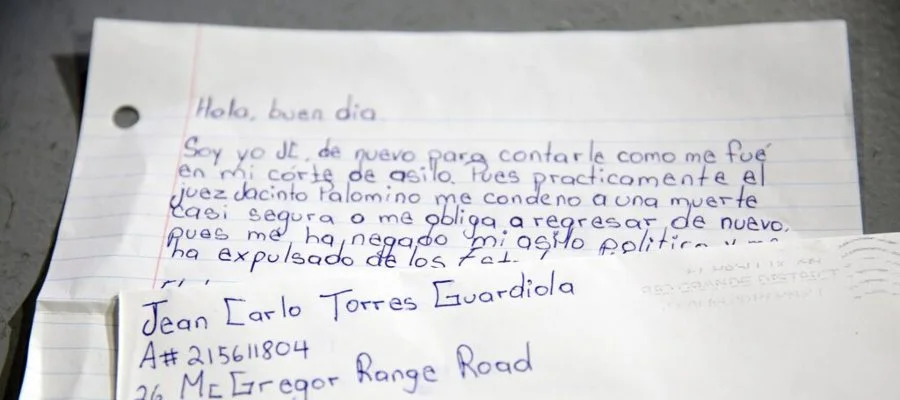 Hola, buen dia
Soy yo JC, de nuevo para contarle como me fué
en mi córte de asilo. Pues practicamente el
juez Jacinto Palomino me condeno a una muerte
casi segura o me obliga a regresar de nuevo,
pues me ha negado mi asilo politico y me
ha expulsado de los
Jean Carlo Torres Guardiola
A# 215611804
26 McGregor Range Road